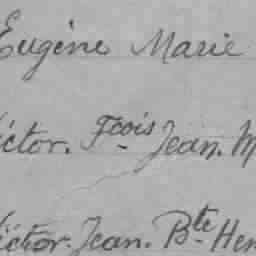 Eugène Marie
ictor. Fcois Jean. M
ictor. Jean. Bte Hen